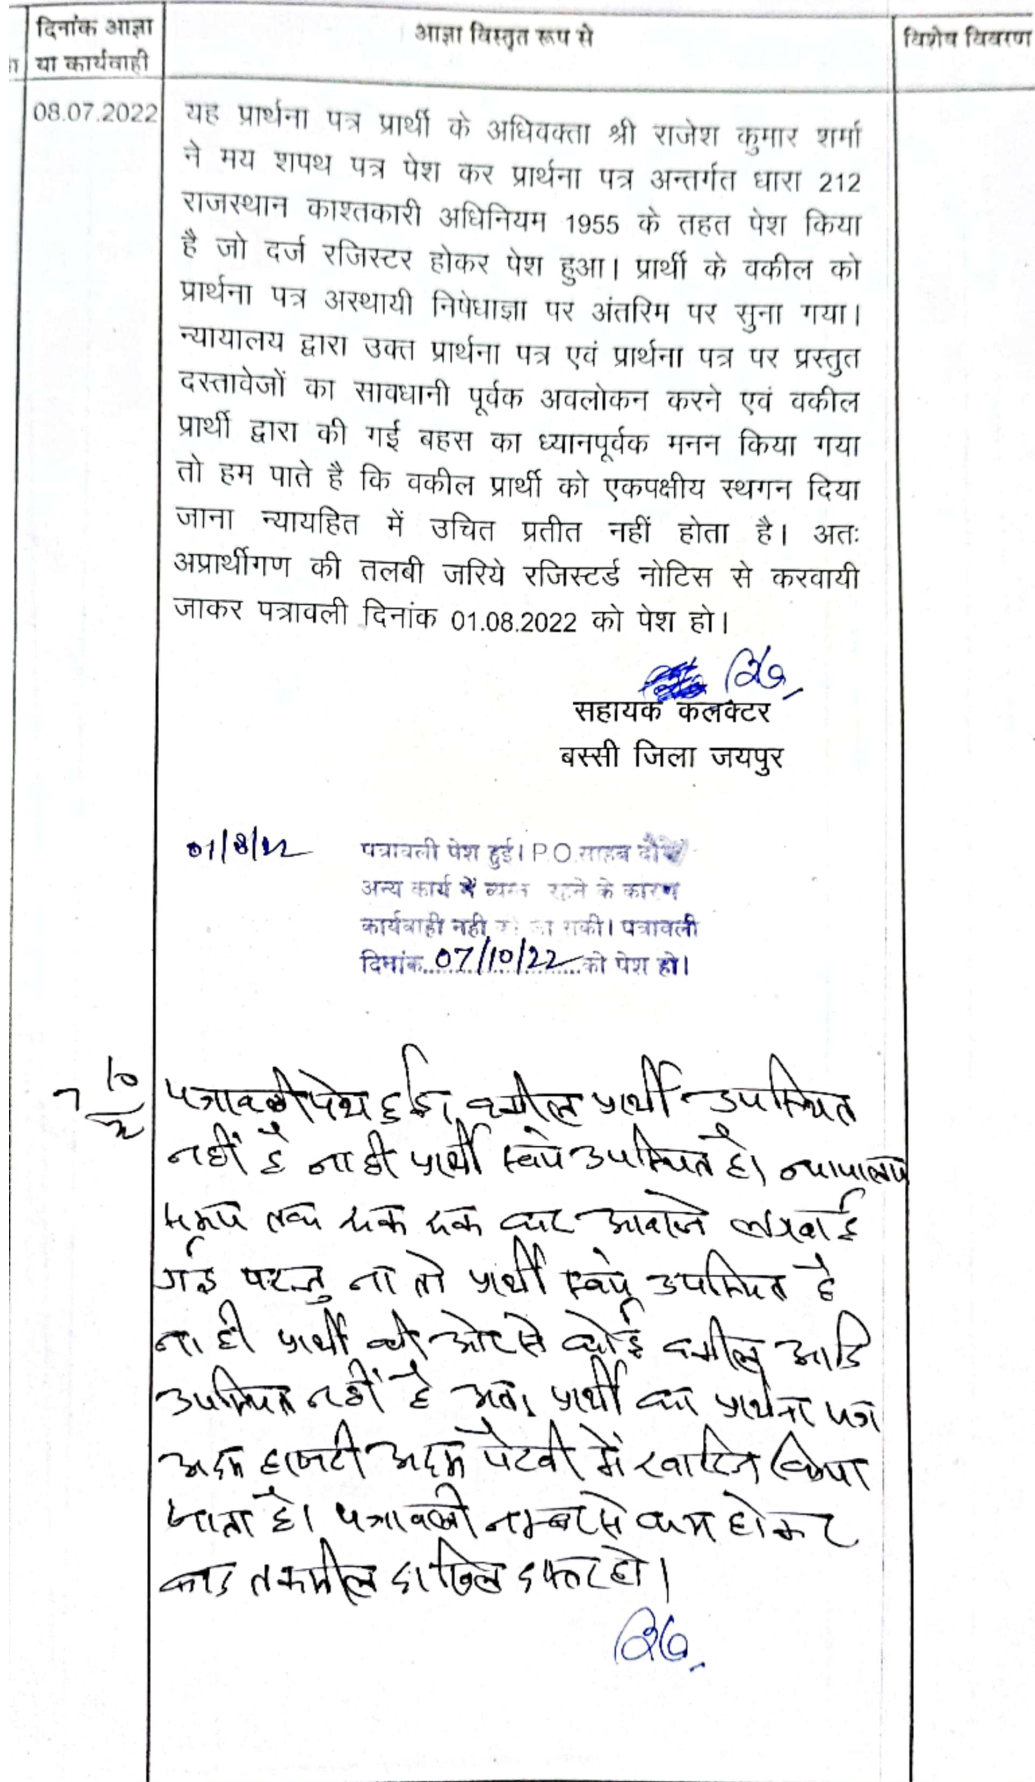 दिनांक आज्ञा
या कार्यवाही
आज्ञा विस्तृत रूप से
विशेष विवरण
08.07.2022
यह प्रार्थना पत्र प्रार्थी के अधिवक्ता श्री राजेश कुमार शर्मा
ने मय शपथ पत्र पेश कर प्रार्थना पत्र अन्तर्गत धारा 212
राजस्थान काश्तकारी अधिनियम 1955 के तहत पेश किया
है जो दर्ज रजिस्टर होकर पेश हुआ। प्रार्थी के वकील को
प्रार्थना पत्र अस्थायी निषेधाज्ञा पर अंतरिम पर सुना गया।
न्यायालय द्वारा उक्त प्रार्थना पत्र एवं प्रार्थना पत्र पर प्रस्तुत
दस्तावेजों का सावधानी पूर्वक अवलोकन करने एवं वकील
प्रार्थी द्वारा की गई बहस का ध्यानपूर्वक मनन किया गया
तो हम पाते है कि वकील प्रार्थी को एकपक्षीय स्थगन दिया
जाना न्यायहित में उचित प्रतीत नहीं होता है। अतः
अप्रार्थीगण की तलबी जरिये रजिस्टर्ड नोटिस से करवायी
जाकर पत्रावली दिनांक 01.08.2022 को पेश हो।
सहायक कलक्टर
बस्सी जिला जयपुर
01/8/22
पत्रावली पेश हुई। P.O. साहब
अन्य कार्य में व्यस्त रहने के कारण
कार्यवाही नही जा सकी। पत्रावली
दिनांक 07/10/22 को पेश हो।
7/10/22
पत्रावली पेश हुई। वकील प्रार्थी उपस्थित
नहीं है ना ही प्रार्थी स्वयं उपस्थित है। न्यायालय
समय तक एक एक बार आवाजे लगवाई
गई परन्तु ना तो प्रार्थी स्वयं उपस्थित है
ना ही प्रार्थी की ओर से कोई वकील आदि
उपस्थित नहीं है अतः प्रार्थी का प्रार्थना पत्र
अदम हाजरी अदम पैरवी में खारिज किया
जाता है। पत्रावली नम्बर से कम होकर
बाद तकमील दाखिल दफ्तर हो।